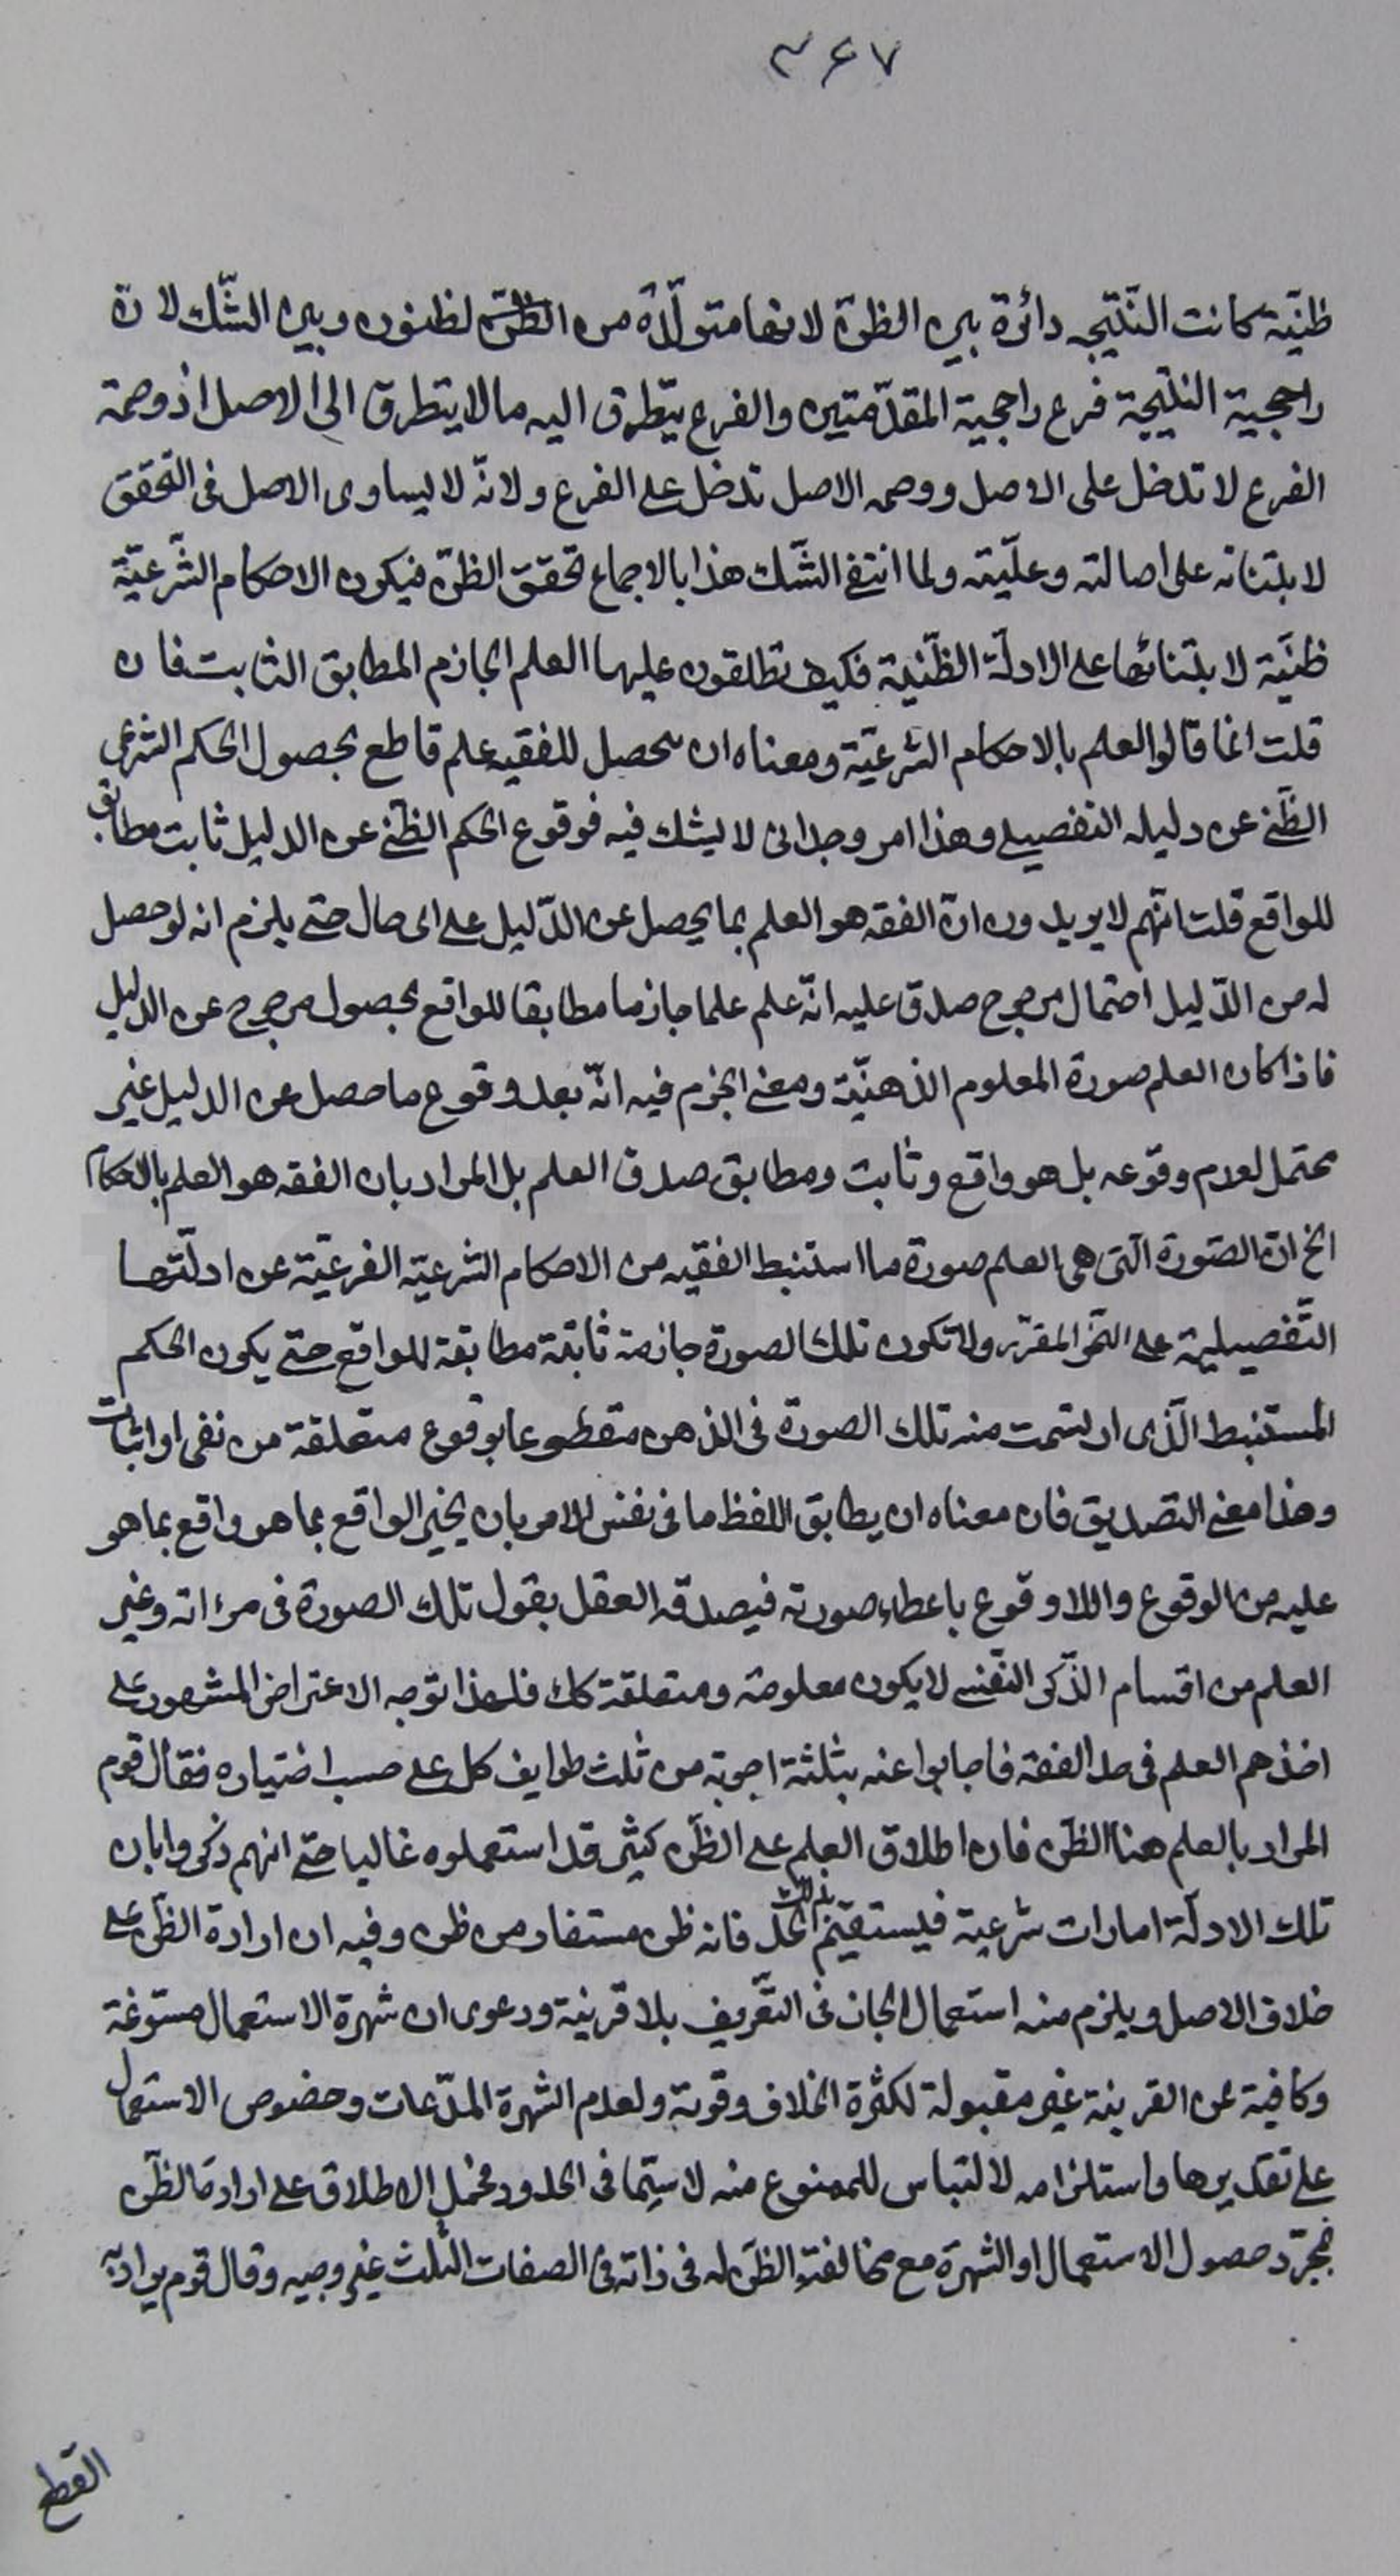 ۳۶۷
ظنّية كانت النّتيجه دائرة بين الظنّ لانها متولّدة من الظنّ لظنون وبين الشّك لانّ
راجحية النتيجة فرع راجحية المقدّمتين والفرع يتطرق اليه ما لا يتطرق الى الاصل اذ وصمة
الفرع لا تدخل على الاصل ووصمه الاصل تدخل على الفرع ولانّه لا يساوى الاصل فى التحقق
لابتنائه على اصالته وعلّيته ولما انتفى الشّك هذا بالاجماع تحقق الظنّ فيكون الاحكام الشّرعيّة
ظنّية لابتنائها على الادلّة الظّنية فكيف تطلقون عليها العلم الجازم المطابق الثابت فان
قلت انما قالوا العلم بالاحكام الشرعيّة ومعناه ان يحصل للفقيه علم قاطع بحصول الحكم الشرعى
الظّنى عن دليله التفصيلى وهذا امر وجدانى لا يشك فيه فوقوع الحكم الظّنى عن الدليل ثابت مطابق
للواقع قلت انّهم لا يريدون انّ الفقه هو العلم بما يحصل عن الدّليل على اى حال حتى يلزم انه لو حصل
له من الدّليل احتمال مرجوح صدق عليه انّه علم علما جازما مطابقا للواقع بحصول مرجوح عن الدليل
فاذا كان العلم صورة المعلوم الذهنيّة ومعنى الجزم فيه انّه بعد وقوع ما حصل عن الدليل غير
محتمل لعدم وقوعه بل هو واقع وثابت ومطابق صدق العلم بل المراد بان الفقه هو العلم بالاحكام
الخ انّ الصّورة الّتى هى العلم صورة ما استنبط الفقيه من الاحكام الشرعيّه الفرعيّة عن ادلّتها
التّفصيلية على النّحو المقرّر ولا تكون تلك الصورة جازمة ثابتة مطابقة للواقع حتى يكون الحكم
المستنبط الّذى ارتسمت منه تلك الصورة فى الذهن مقطوعا بوقوع متعلقة من نفى او اثبات
وهذا معنى التصديق فان معناه ان يطابق اللفظ ما فى نفس الامر بان يخبر الواقع بما هو واقع بما هو
عليه من الوقوع واللاوقوع باعطاء صورته فيصدقه العقل بقول تلك الصورة فى مراته وغير
العلم من اقسام الذّكر النّفسى لا يكون معلومة ومتعلقة كك فلهذا توجه الاعتراض المشهور على
اخذهم العلم فى حد الفقه فاجابوا عنه بثلثة اجوبة من ثلث طوايف كل على حسب اختياره فقال قوم
المراد بالعلم هنا الظّن فان اطلاق العلم على الظّن كثير قد استعملوه غالبا حتى انهم ذكروا بان
تلك الادلّة امارات شرعية فيستقيم الحد فانه ظن مستفاد من ظن وفيه ان ارادة الظّن على
خلاف الاصل ويلزم منه استعمال المجاز فى التّعريف بلا قرينة ودعوى ان شهرة الاستعمال مسوّغة
وكافية عن القرينة غير مقبولة لكثرة الخلاف وقوته ولعدم الشهرة المدّعات وخصوص الاستعمال
على تقديرها واستلزامه لالتباس للممنوع منه لا سيّما فى الحدود فحمل الاطلاق على ارادة الظّن
بمجرّد حصول الاستعمال او الشهرة مع مخالفة الظّن له فى ذاته فى الصفات الثلث غير وجيه وقال قوم يراد به
القطع